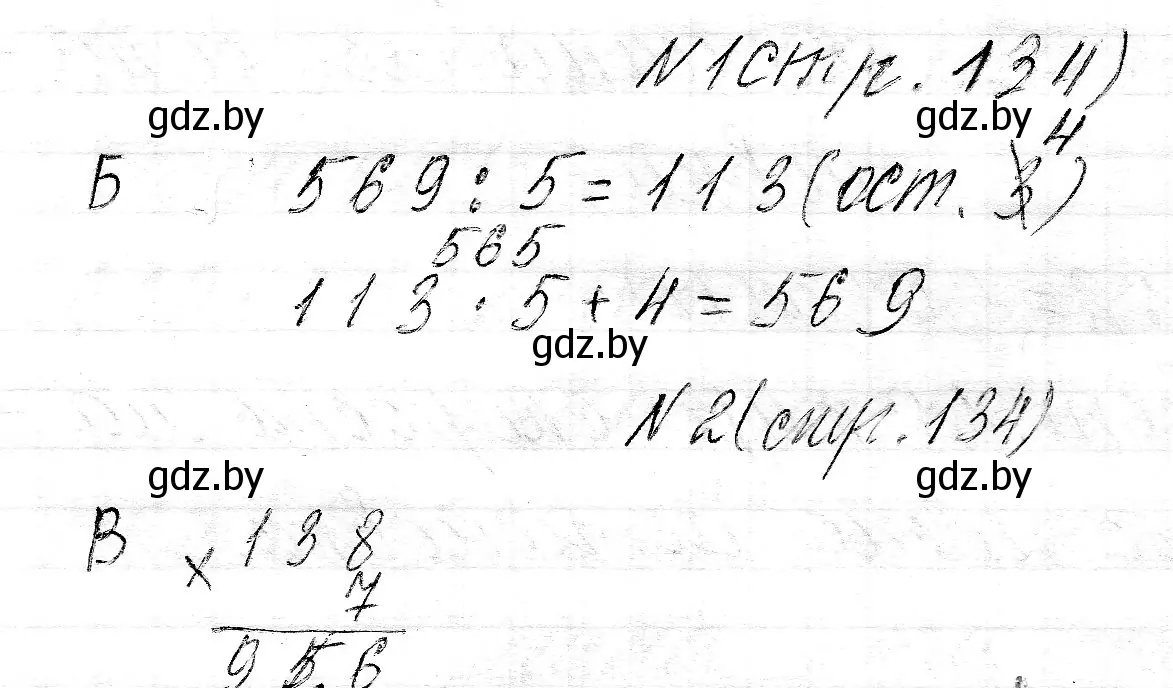 N1стр.134)
gdz.by gdz.by
4
Б 569:5=113(ост. 3)
565
113·5+4=569
gdz.by
N2(стр.134)
gdz.by gdz.by
В ×138
7
956